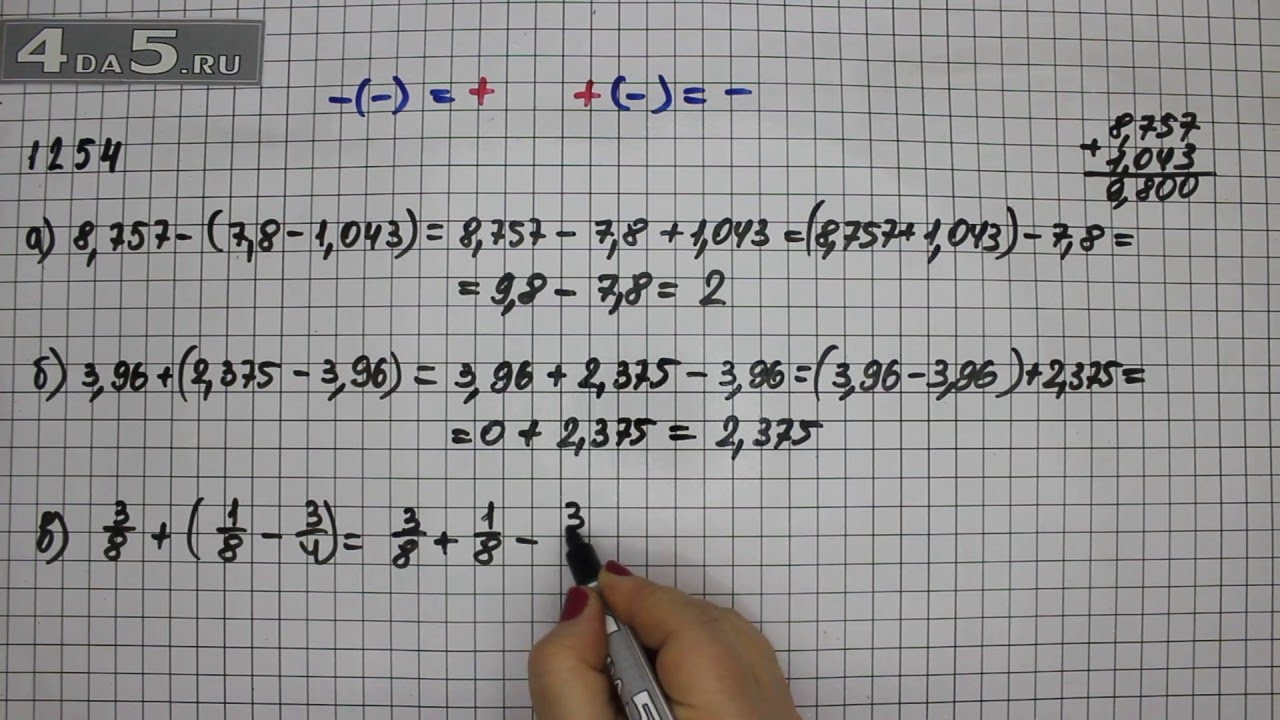 4DA5.RU
-(-) = + +(-) = -
1254
8,757
+ 1,043
9,800
а) 8,757 - (7,8 - 1,043) = 8,757 - 7,8 + 1,043 = (8,757 + 1,043) - 7,8 =
= 9,8 - 7,8 = 2
б) 3,96 + (2,375 - 3,96) = 3,96 + 2,375 - 3,96 = (3,96 - 3,96) + 2,375 =
= 0 + 2,375 = 2,375
в) 3/8 + (1/8 - 3/4) = 3/8 + 1/8 - 3